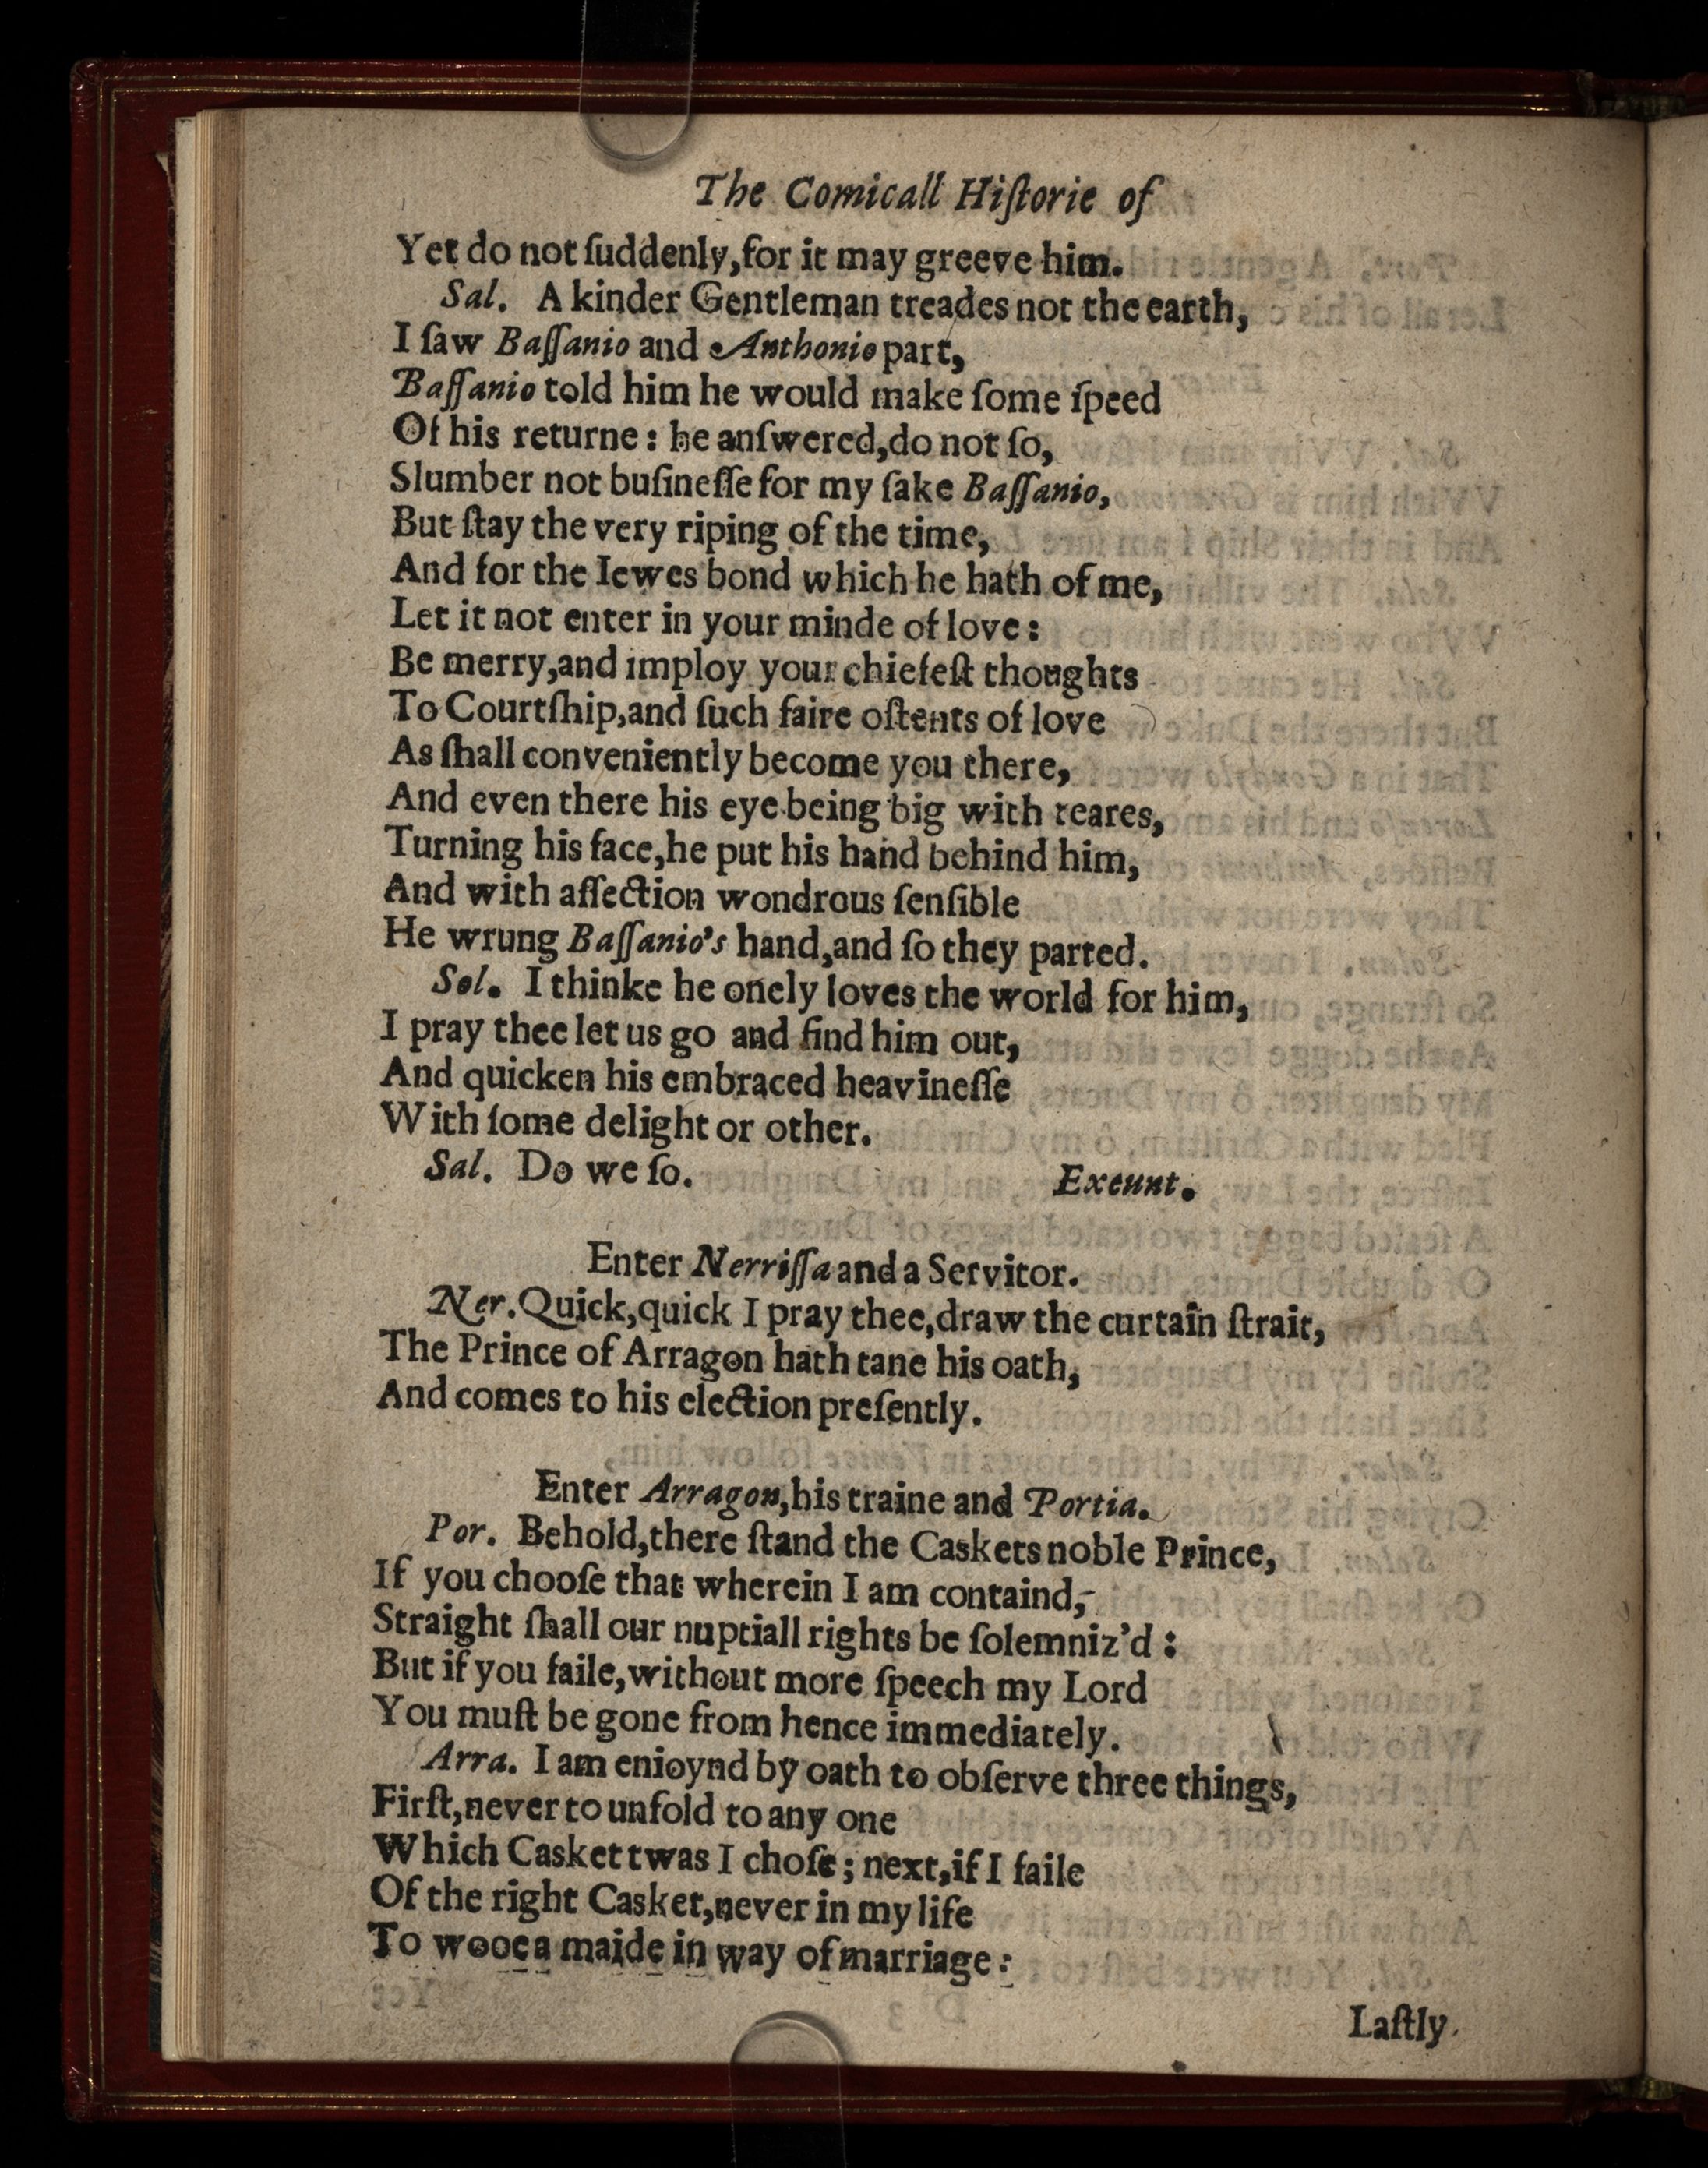 The Comicall Hiſtorie of
Yet do not ſuddenly,for it may greeve him.
Sal. A kinder Gentleman treades not the earth,
I ſaw Baſſanio and Anthonio part,
Baſſanio told him he would make ſome ſpeed
Of his returne: he anſwered,do not ſo,
Slumber not buſineſſe for my ſake Baſſanio,
But ſtay the very riping of the time,
And for the Iewes bond which he hath of me,
Let it not enter in your minde of love:
Be merry,and imploy your chiefeſt thoughts
To Courtſhip,and ſuch faire oſtents of love
As ſhall conveniently become you there,
And even there his eye being big with teares,
Turning his face,he put his hand behind him,
And with affection wondrous ſenſible
He wrung Baſſanio's hand,and ſo they parted.
Sol. I thinke he onely loves the world for him,
I pray thee let us go and find him out,
And quicken his embraced heavineſſe
With ſome delight or other.
Sal. Do we ſo. Exeunt.
Enter Nerriſſa and a Servitor.
Ner. Quick,quick I pray thee,draw the curtain ſtrait,
The Prince of Arragon hath tane his oath,
And comes to his election preſently.
Enter Arragon,his traine and Portia.
Por. Behold,there ſtand the Caskets noble Prince,
If you chooſe that wherein I am containd,
Straight ſhall our nuptiall rights be ſolemniz'd:
But if you faile,without more ſpeech my Lord
You muſt be gone from hence immediately.
Arra. I am enioynd by oath to obſerve three things,
Firſt,never to unfold to any one
Which Casket twas I choſe; next,if I faile
Of the right Casket,never in my life
To wooe a maide in way of marriage:
Laſtly.